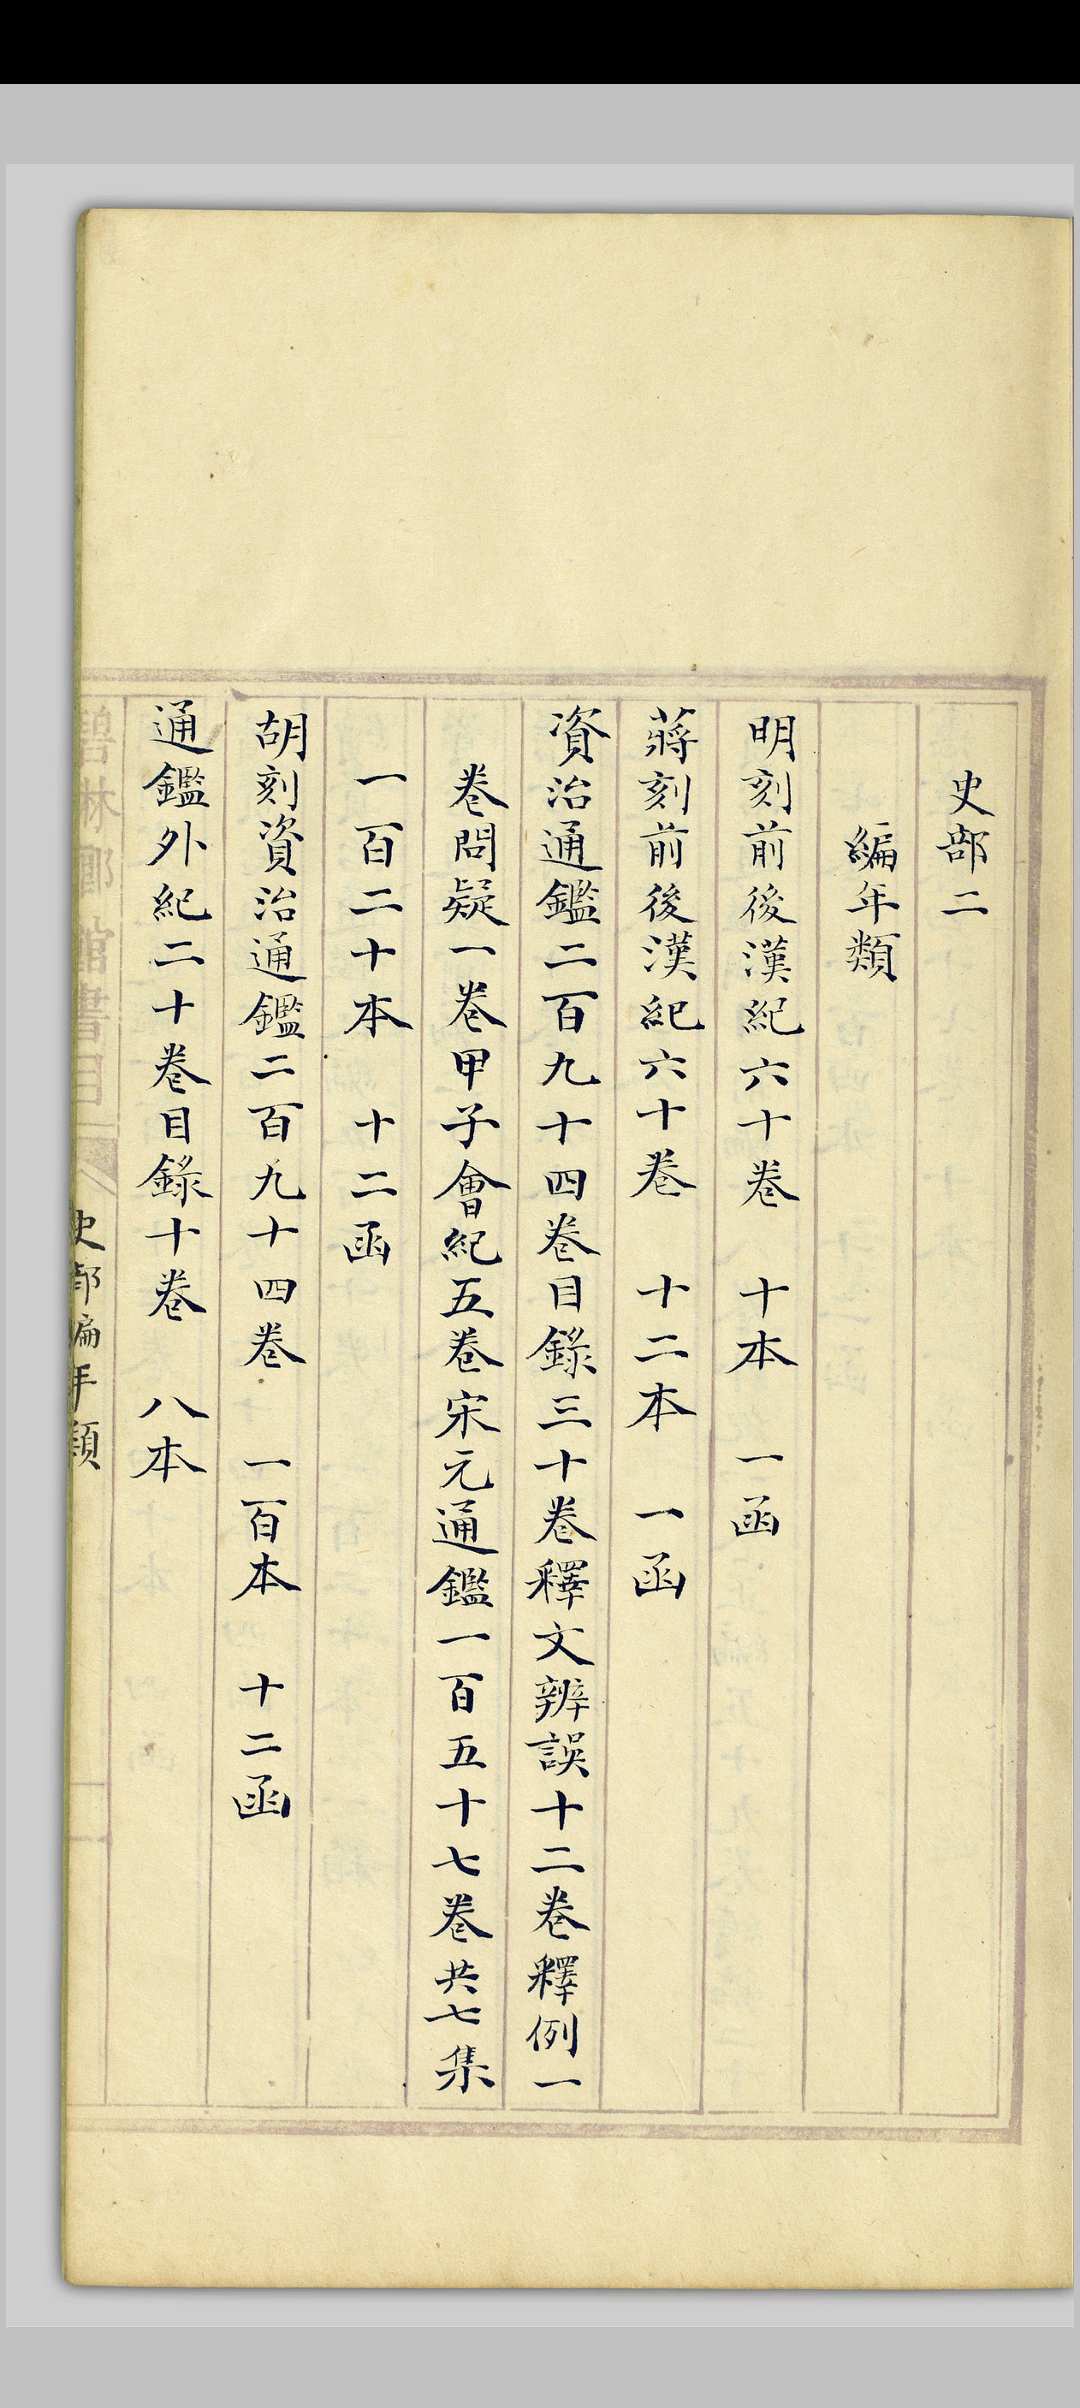 史部二
編年類
明刻前後漢紀六十卷 十本 一函
蔣刻前後漢紀六十卷 十二本 一函
資治通鑑二百九十四卷目錄三十卷釋文辨誤十二卷釋例一
卷問疑一卷甲子會紀五卷宋元通鑑一百五十七卷共七集
一百二十本 十二函
胡刻資治通鑑二百九十四卷 一百本 十二函
通鑑外紀二十卷目錄十卷 八本
碧琳瑯館書目 史部編年類